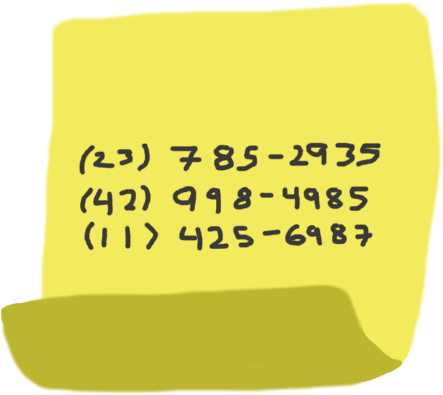 (23) 785-2935
(42) 998-4985
(11) 425-6987